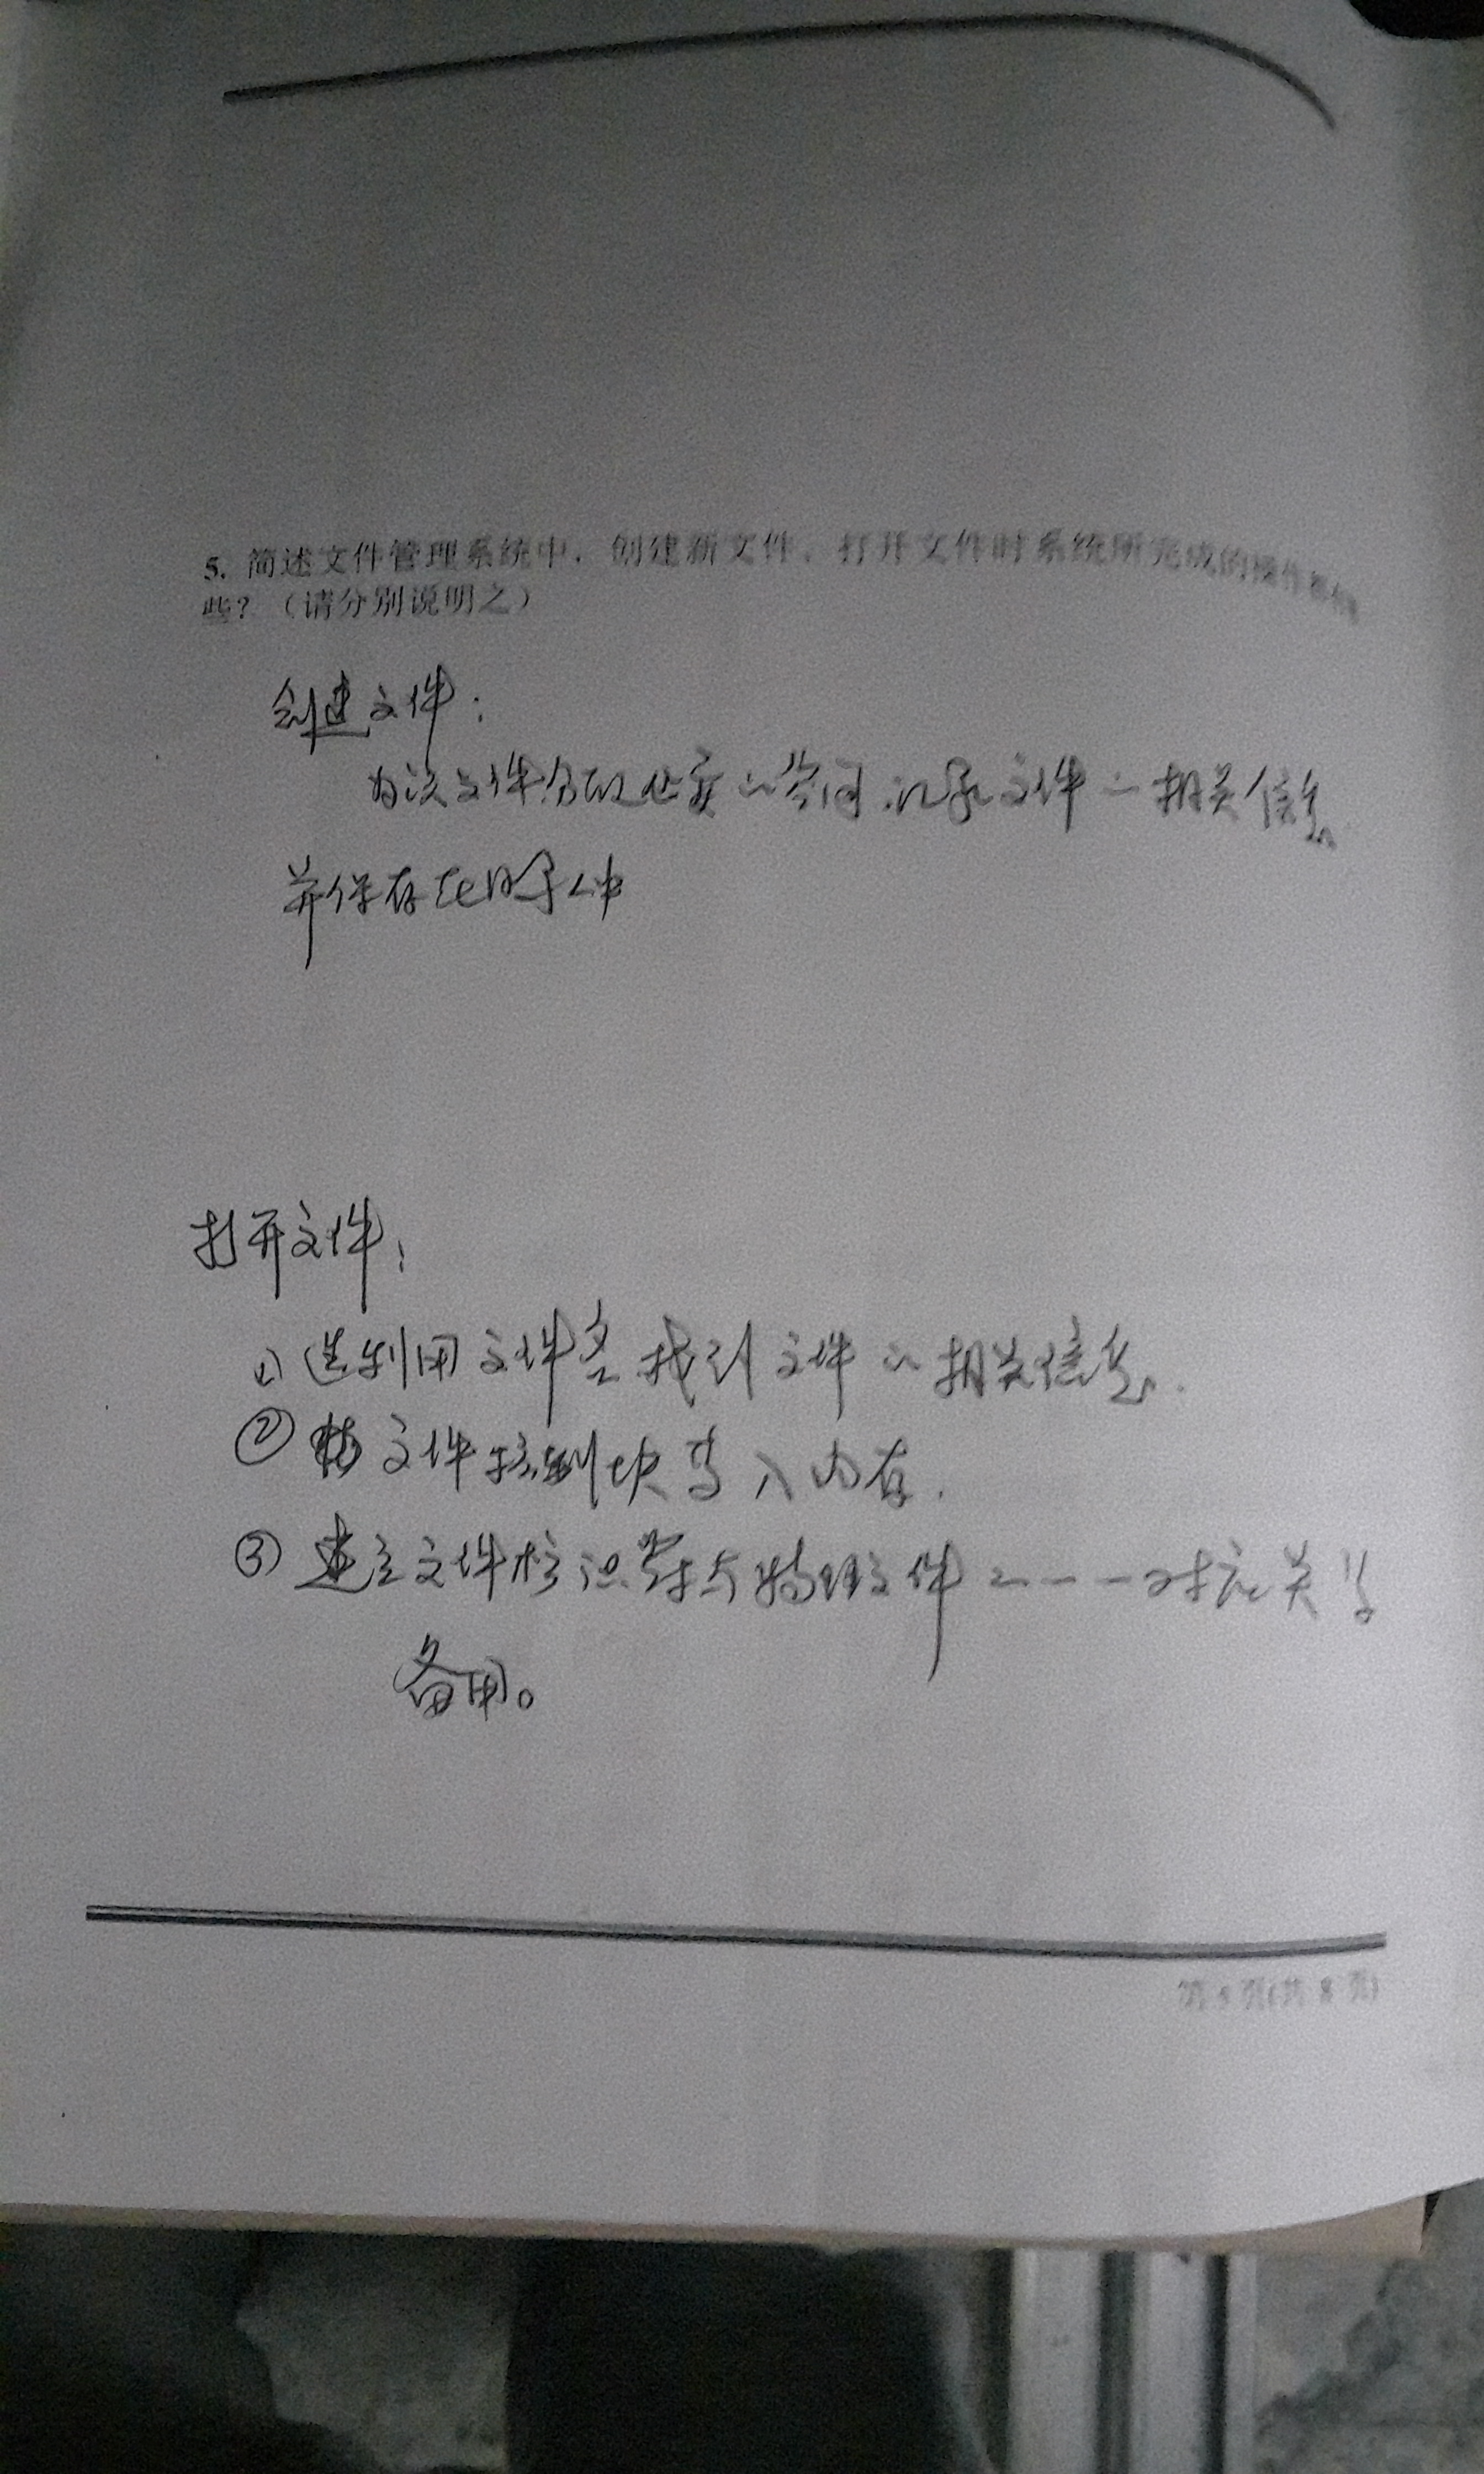 5. 简述文件管理系统中，创建新文件、打开文件时系统所完成的操作有哪
些？（请分别说明之）
创建文件：
为该文件分配必要的空间，记录文件的相关信息
并保存在目录中
打开文件：
① 选利用文件名找到文件的相关信息.
② 将文件控制块写入内存.
③ 建立文件标识符与物理文件的一一对应关系
备用。
第 5 页(共 8 页)